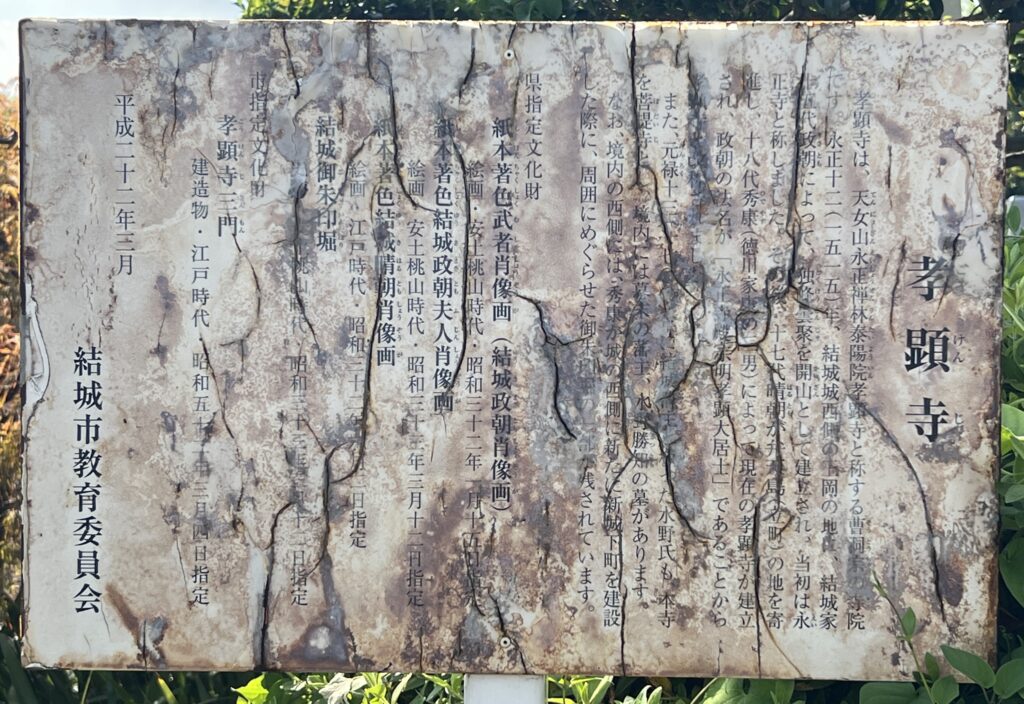 孝顕寺
孝顕寺は、天女山永正禅林泰陽院孝顕寺と称する曹洞宗の寺院
です。永正十二(一五一五)年、結城城西側の 岡の地に、結城家
十五代政朝によって、 を開山として建立され、当初は永
正寺と称しました。その後、十七代晴朝が 町)の地を寄
進し、十八代秀康(徳川家康の 男)によって現在の孝顕寺が建立
され、政朝の法名が「永正 孝顕大居士」であることから

また、元禄十 た水野氏も、本寺
を菩提寺とし、境内には幕末の藩主、水野勝知の墓があります。
なお、境内の西側には、秀康が城の西側に新たに新城下町を建設
した際に、周囲にめぐらせた御朱印堀の 残されています。
県指定文化財
紙本著色武者肖像画(結城政朝肖像画)
絵画・安土桃山時代・昭和三十二年一月十五日指定
紙本著色結城政朝夫人肖像画
絵画・安土桃山時代・昭和三十三年三月十二日指定
紙本著色結城晴朝肖像画
絵画・江戸時代・昭和三十 月指定
結城御朱印堀
桃山時代・昭和三十三年三月十二日指定
市指定文化財
孝顕寺三門
建造物・江戸時代・昭和五十 年三月四日指定
平成二十二年三月
結城市教育委員会